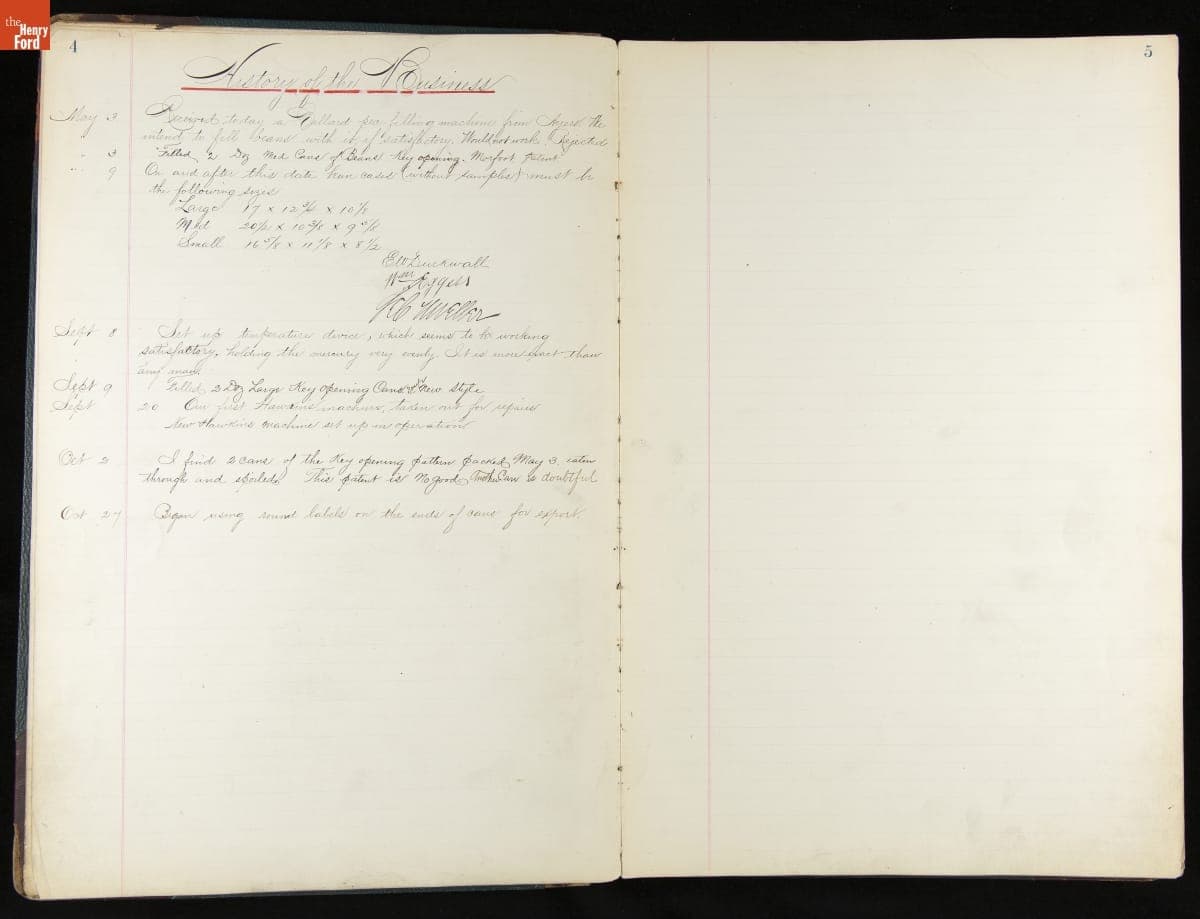 the
Henry
Ford
4
History of the Business
May 3 Received today a Ballard pea filling machine from Ayers We
intend to fill beans with it, if satisfactory. Would not work Rejected
" 3 Filled 2 Doz Med Cans of Beans Key opening. patent
" 9 On and after this date bean cases (without samples) must be
the following sizes
Large 17 x 12 3/4 x 10 1/8
Med 20 1/2 x 10 3/8 x 9 5/8
Small 16 5/8 x 11 1/8 x 8 1/2
E W Duckwall
Wm
F C Mueller
Sept 8 Set up temperature device, which seems to be working
satisfactory, holding the mercury very evenly It is more exact than
any man.
Sept 9 Filled 2 Doz Large Key opening Cans New Style
Sept 20 Our first Hawkins machine, taken out for repairs
New Hawkins machine set up in operation
Oct 2 I find 2 cans of the Key opening pattern packed May 3. eaten
through and spoiled. This patent is No good, Can is doubtful
Oct 27 Began using round labels on the ends of cans for export.
5